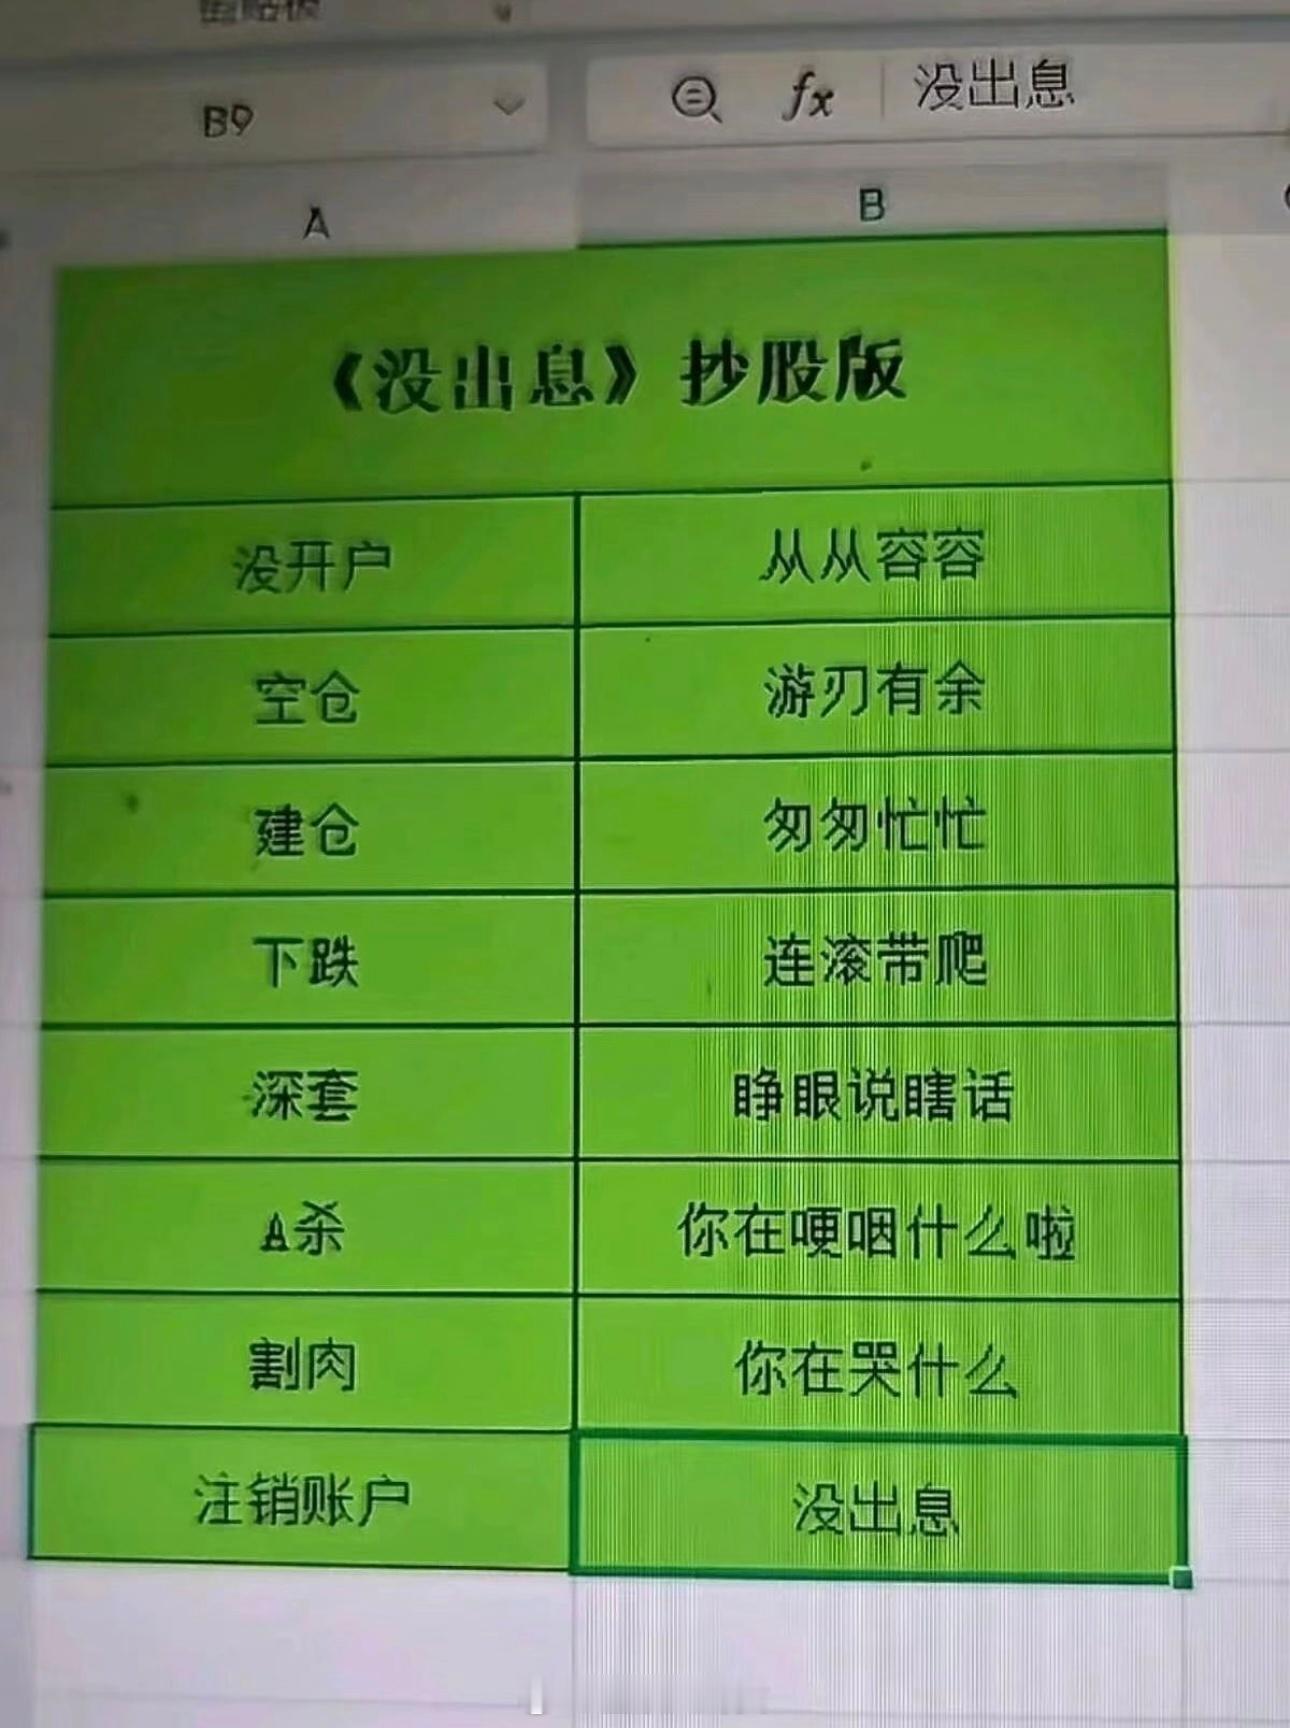 B9 fx 没出息
A B
《没出息》抄股版
没开户 从从容容
空仓 游刃有余
建仓 匆匆忙忙
下跌 连滚带爬
深套 睁眼说瞎话
A杀 你在哽咽什么啦
割肉 你在哭什么
注销账户 没出息